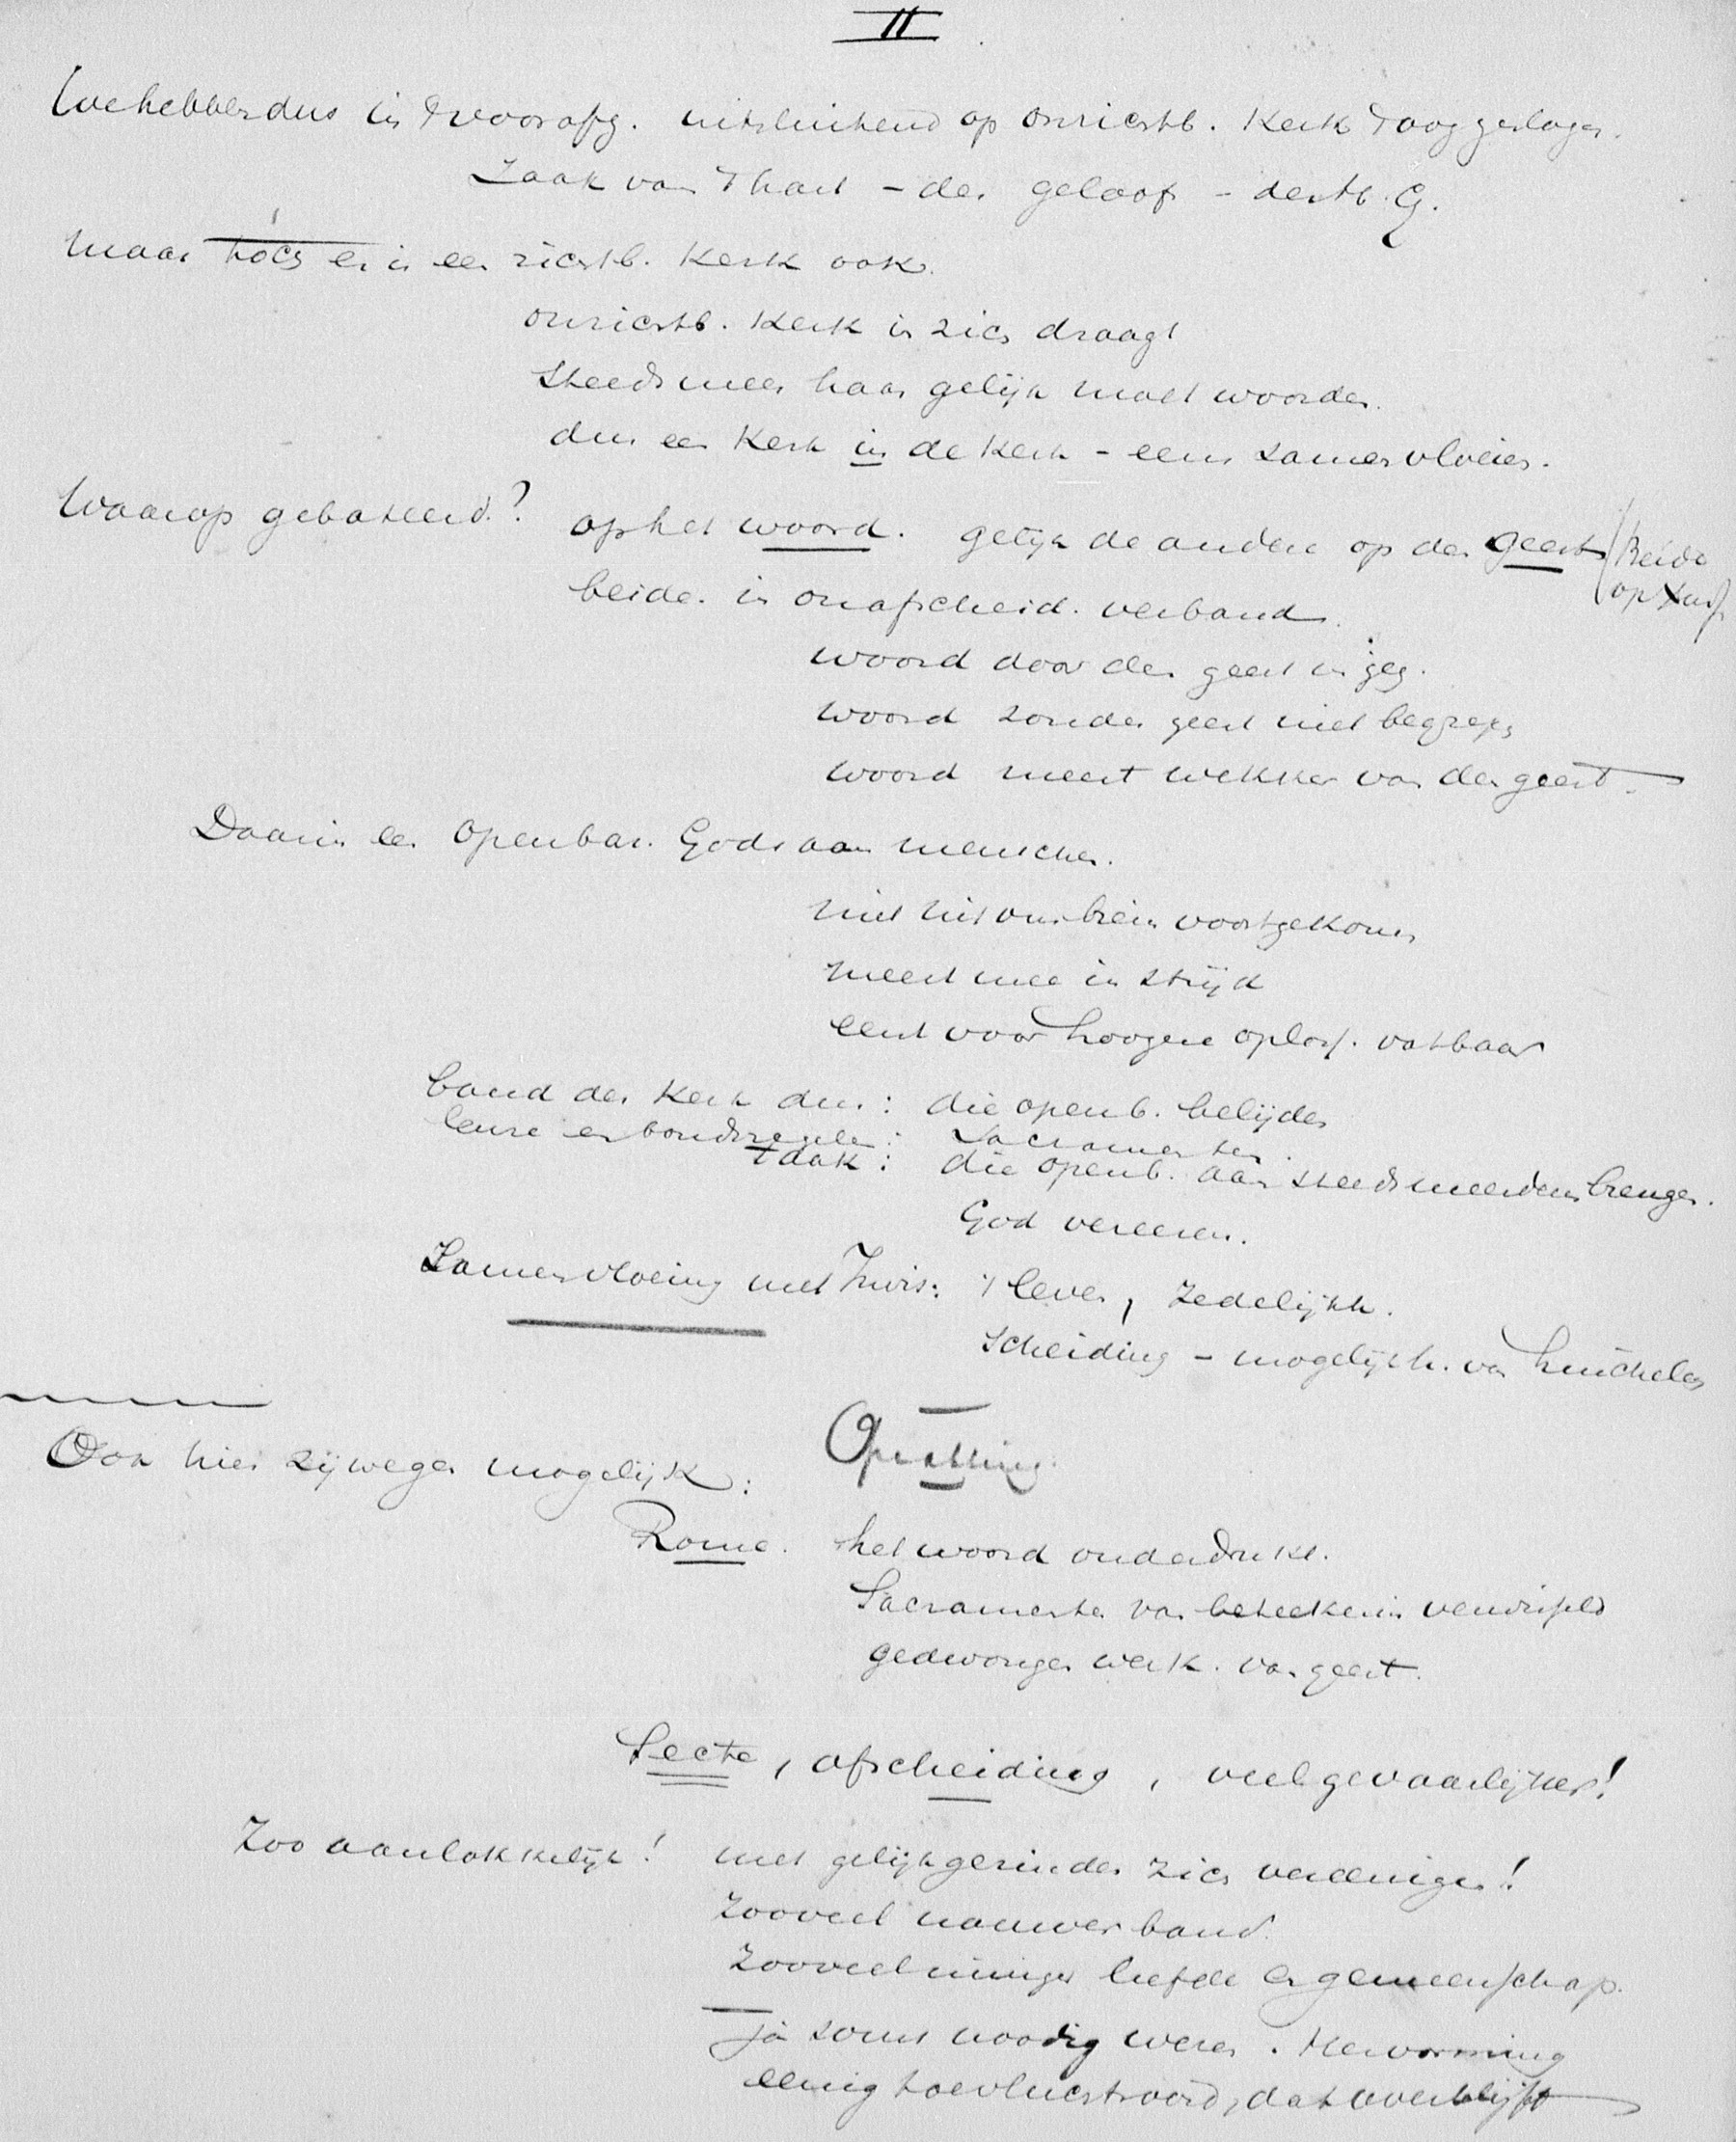 II
We hebben dus in 't voorafg. uitsluitend op onzichtb. Kerk 't oog geslagen.
Zaak van 't hart – der geloof – des H. G.
Maar tóch er is een zichtb. Kerk ook.
onzichtb. Kerk in zich draagt
steeds meer haar gelijk moet worden.
dus een Kerk in de Kerk – eens samenvloeien.
Waarop gebaseerd? op het woord. gelijk de andere op den geest
Beide op
beide in onafscheid. verband.
woord door den geest ingeg.
woord zonder geest niet begrepen
woord meest wekker van den geest.
Daarin een Openbar. Gods aan menschen.
niet uit ons brein voortgekomen
meest mee in strijd
eerst voor hoogere oploss. vatbaar
band der Kerk dus: die openb. belijden
leuze en bondszegelen: Sacramenten.
taak: die openb. aan steeds meerderen brengen.
God vereeren.
Samenvloeiing met Inwis: 't leven, Zedelijkh.
Scheiding – mogelijkh. van huichelen
Ook hier zijwegen mogelijk: Opvatting.
Rome. het woord onderdrukt.
Sacramenten van beteekenis verwisseld
gedwongen werk. van geest.
Secte, afscheiding, veel gevaarlijker!
Zoo aanlokkelijk! met gelijkgezinden zich vereenigen!
Zooveel nauwer band.
Zooveel inniger liefde en gemeenschap.
Ja soms noodig wezen. Hervorming
eenig toevluchtsoord, dat overblijft